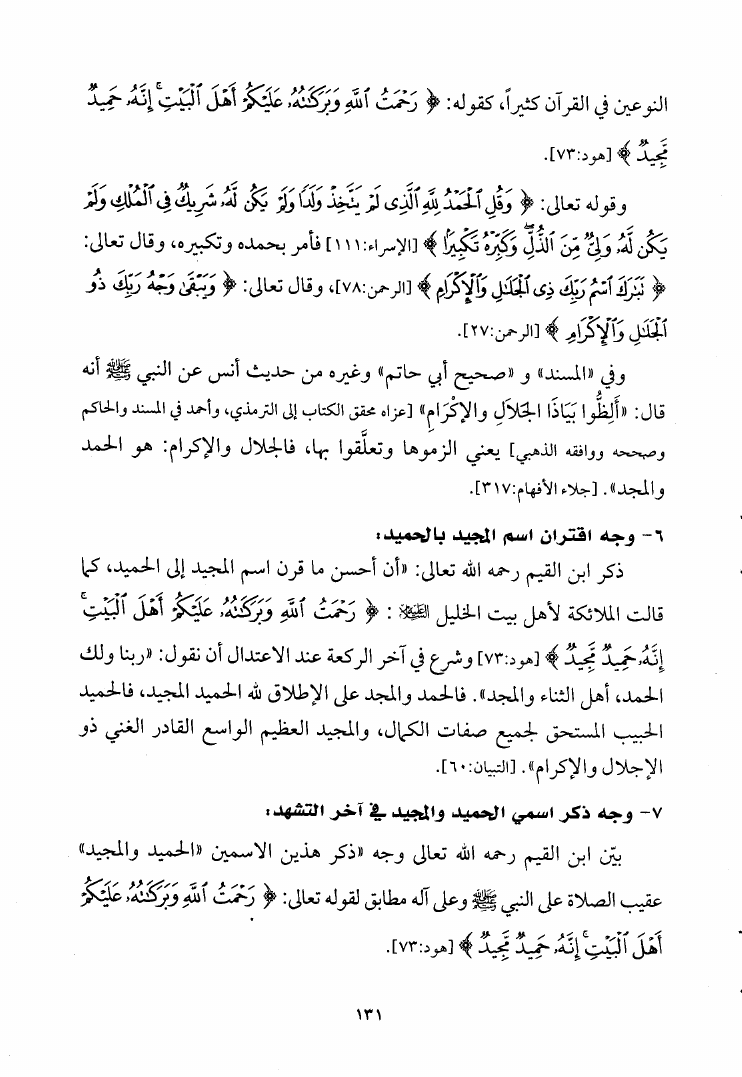 النوعين في القرآن كثيراً، كقوله: ﴿ رَحْمَتُ ٱللَّهِ وَبَرَكَـٰتُهُۥ عَلَيْكُمْ أَهْلَ ٱلْبَيْتِ ۚ إِنَّهُۥ حَمِيدٌ
مَّجِيدٌ ﴾ [هود:٧٣].
وقوله تعالى: ﴿ وَقُلِ ٱلْحَمْدُ لِلَّهِ ٱلَّذِى لَمْ يَتَّخِذْ وَلَدًا وَلَمْ يَكُن لَّهُۥ شَرِيكٌ فِى ٱلْمُلْكِ وَلَمْ
يَكُن لَّهُۥ وَلِىٌّ مِّنَ ٱلذُّلِّ ۖ وَكَبِّرْهُ تَكْبِيرًۢا ﴾ [الإسراء:١١١] فأمر بحمده وتكبيره، وقال تعالى:
﴿ تَبَـٰرَكَ ٱسْمُ رَبِّكَ ذِى ٱلْجَلَـٰلِ وَٱلْإِكْرَامِ ﴾ [الرحمن:٧٨]، وقال تعالى: ﴿ وَيَبْقَىٰ وَجْهُ رَبِّكَ ذُو
ٱلْجَلَـٰلِ وَٱلْإِكْرَامِ ﴾ [الرحمن:٢٧].
وفي «المسند» و «صحيح أبي حاتم» وغيره من حديث أنس عن النبي ﷺ أنه
قال: «أَلِظُّوا بَيَاذَا الجَلاَلِ والإكْرَام» [عزاه محقق الكتاب إلى الترمذي، وأحمد في المسند والحاكم
وصححه ووافقه الذهبي] يعني الزموها وتعلَّقوا بها، فالجلال والإكرام: هو الحمد
والمجد». [جلاء الأفهام:٣١٧].
٦- وجه اقتران اسم المجيد بالحميد:
ذكر ابن القيم رحمه الله تعالى: «أن أحسن ما قرن اسم المجيد إلى الحميد، كما
قالت الملائكة لأهل بيت الخليل عليه السلام : ﴿ رَحْمَتُ ٱللَّهِ وَبَرَكَـٰتُهُۥ عَلَيْكُمْ أَهْلَ ٱلْبَيْتِ ۚ
إِنَّهُۥ حَمِيدٌ مَّجِيدٌ ﴾ [هود:٧٣] وشرع في آخر الركعة عند الاعتدال أن نقول: «ربنا ولك
الحمد، أهل الثناء والمجد». فالحمد والمجد على الإطلاق لله الحميد المجيد، فالحميد
الحبيب المستحق لجميع صفات الكمال، والمجيد العظيم الواسع القادر الغني ذو
الإجلال والإكرام». [التبيان:٦٠].
٧- وجه ذكر اسمي الحميد والمجيد في آخر التشهد:
بيّن ابن القيم رحمه الله تعالى وجه «ذكر هذين الاسمين «الحميد والمجيد»
عقيب الصلاة على النبي ﷺ وعلى آله مطابق لقوله تعالى: ﴿ رَحْمَتُ ٱللَّهِ وَبَرَكَـٰتُهُۥ عَلَيْكُمْ
أَهْلَ ٱلْبَيْتِ ۚ إِنَّهُۥ حَمِيدٌ مَّجِيدٌ ﴾ [هود:٧٣].
١٣١